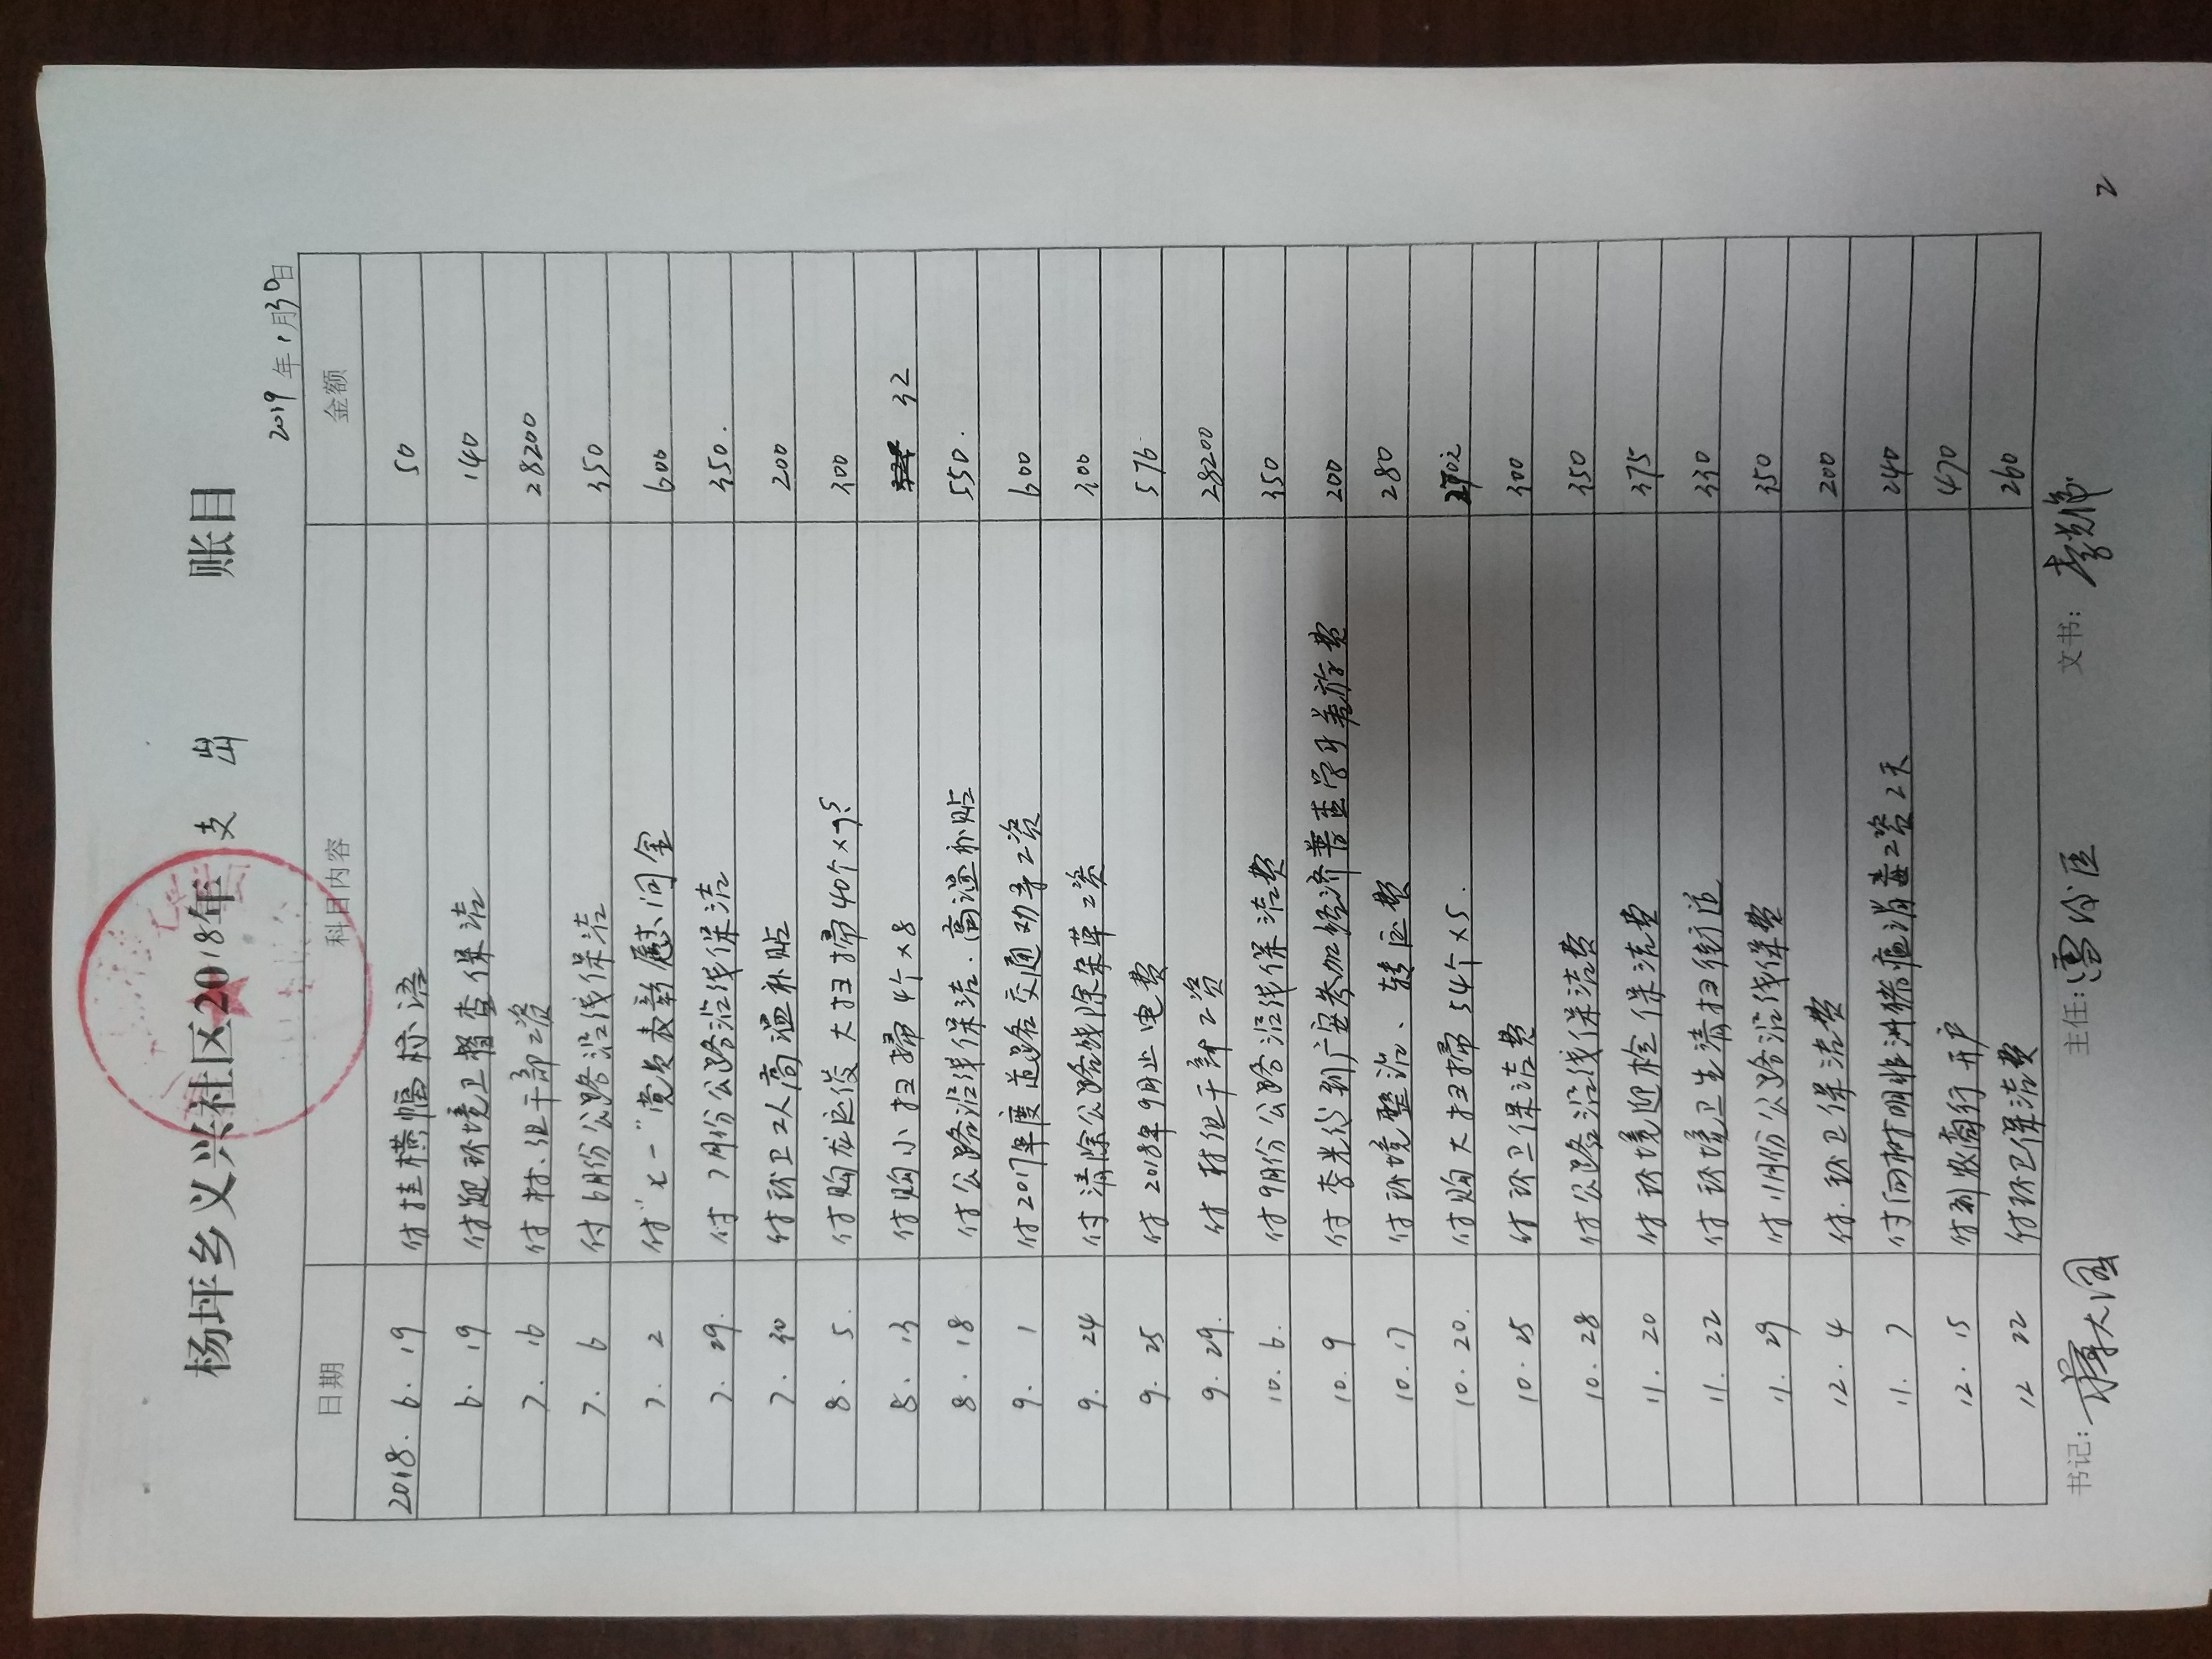 杨坪乡义兴社区2018年 支 出 账目
2019年1月30日
日期 科目内容 金额
2018.6.19 付挂横幅标语 50
6.19 付迎环境卫督查保洁 140
7.16 付村、组干部工资 28200
7.6 付6月份公路沿线保洁 350
7.2 付"七一"党员表彰慰问金 600
7.29. 付7月份公路沿线保洁 350.
7.30 付环卫工人高温补贴 200
8.5. 付购龙运俊大扫掃40个×7.5 300
8.13 付购小扫掃4个×8 32
8.18 付公路沿线保洁.高温补贴 550.
9.1 付2017年度道路交通劝导工资 600
9.24 付清除公路线除杂草工资 300
9.25 付2018年9月止电费 576
9.29. 付村组干部工资 28200
10.6. 付9月份公路沿线保洁费 350
10.9 付李光 到广安参加经济普查学习差旅费 200
10.17 付环境整治、转运费 280
10.20. 付购大扫掃54个×5. 270
10.25 付环卫保洁费 300
10.28 付公路沿线保洁费 350
11.20 付环境迎检保洁费 375
11.22 付环境卫生清扫街道 330
11.29 付11月份公路沿线保费 350
12.4 付.环卫保洁费 200
11.7 付 明非洲猪瘟消毒工资2天 240
12.15 付到农商行开户 470
12 22 付环卫保洁费 260
书记: 主任: 文书:
2